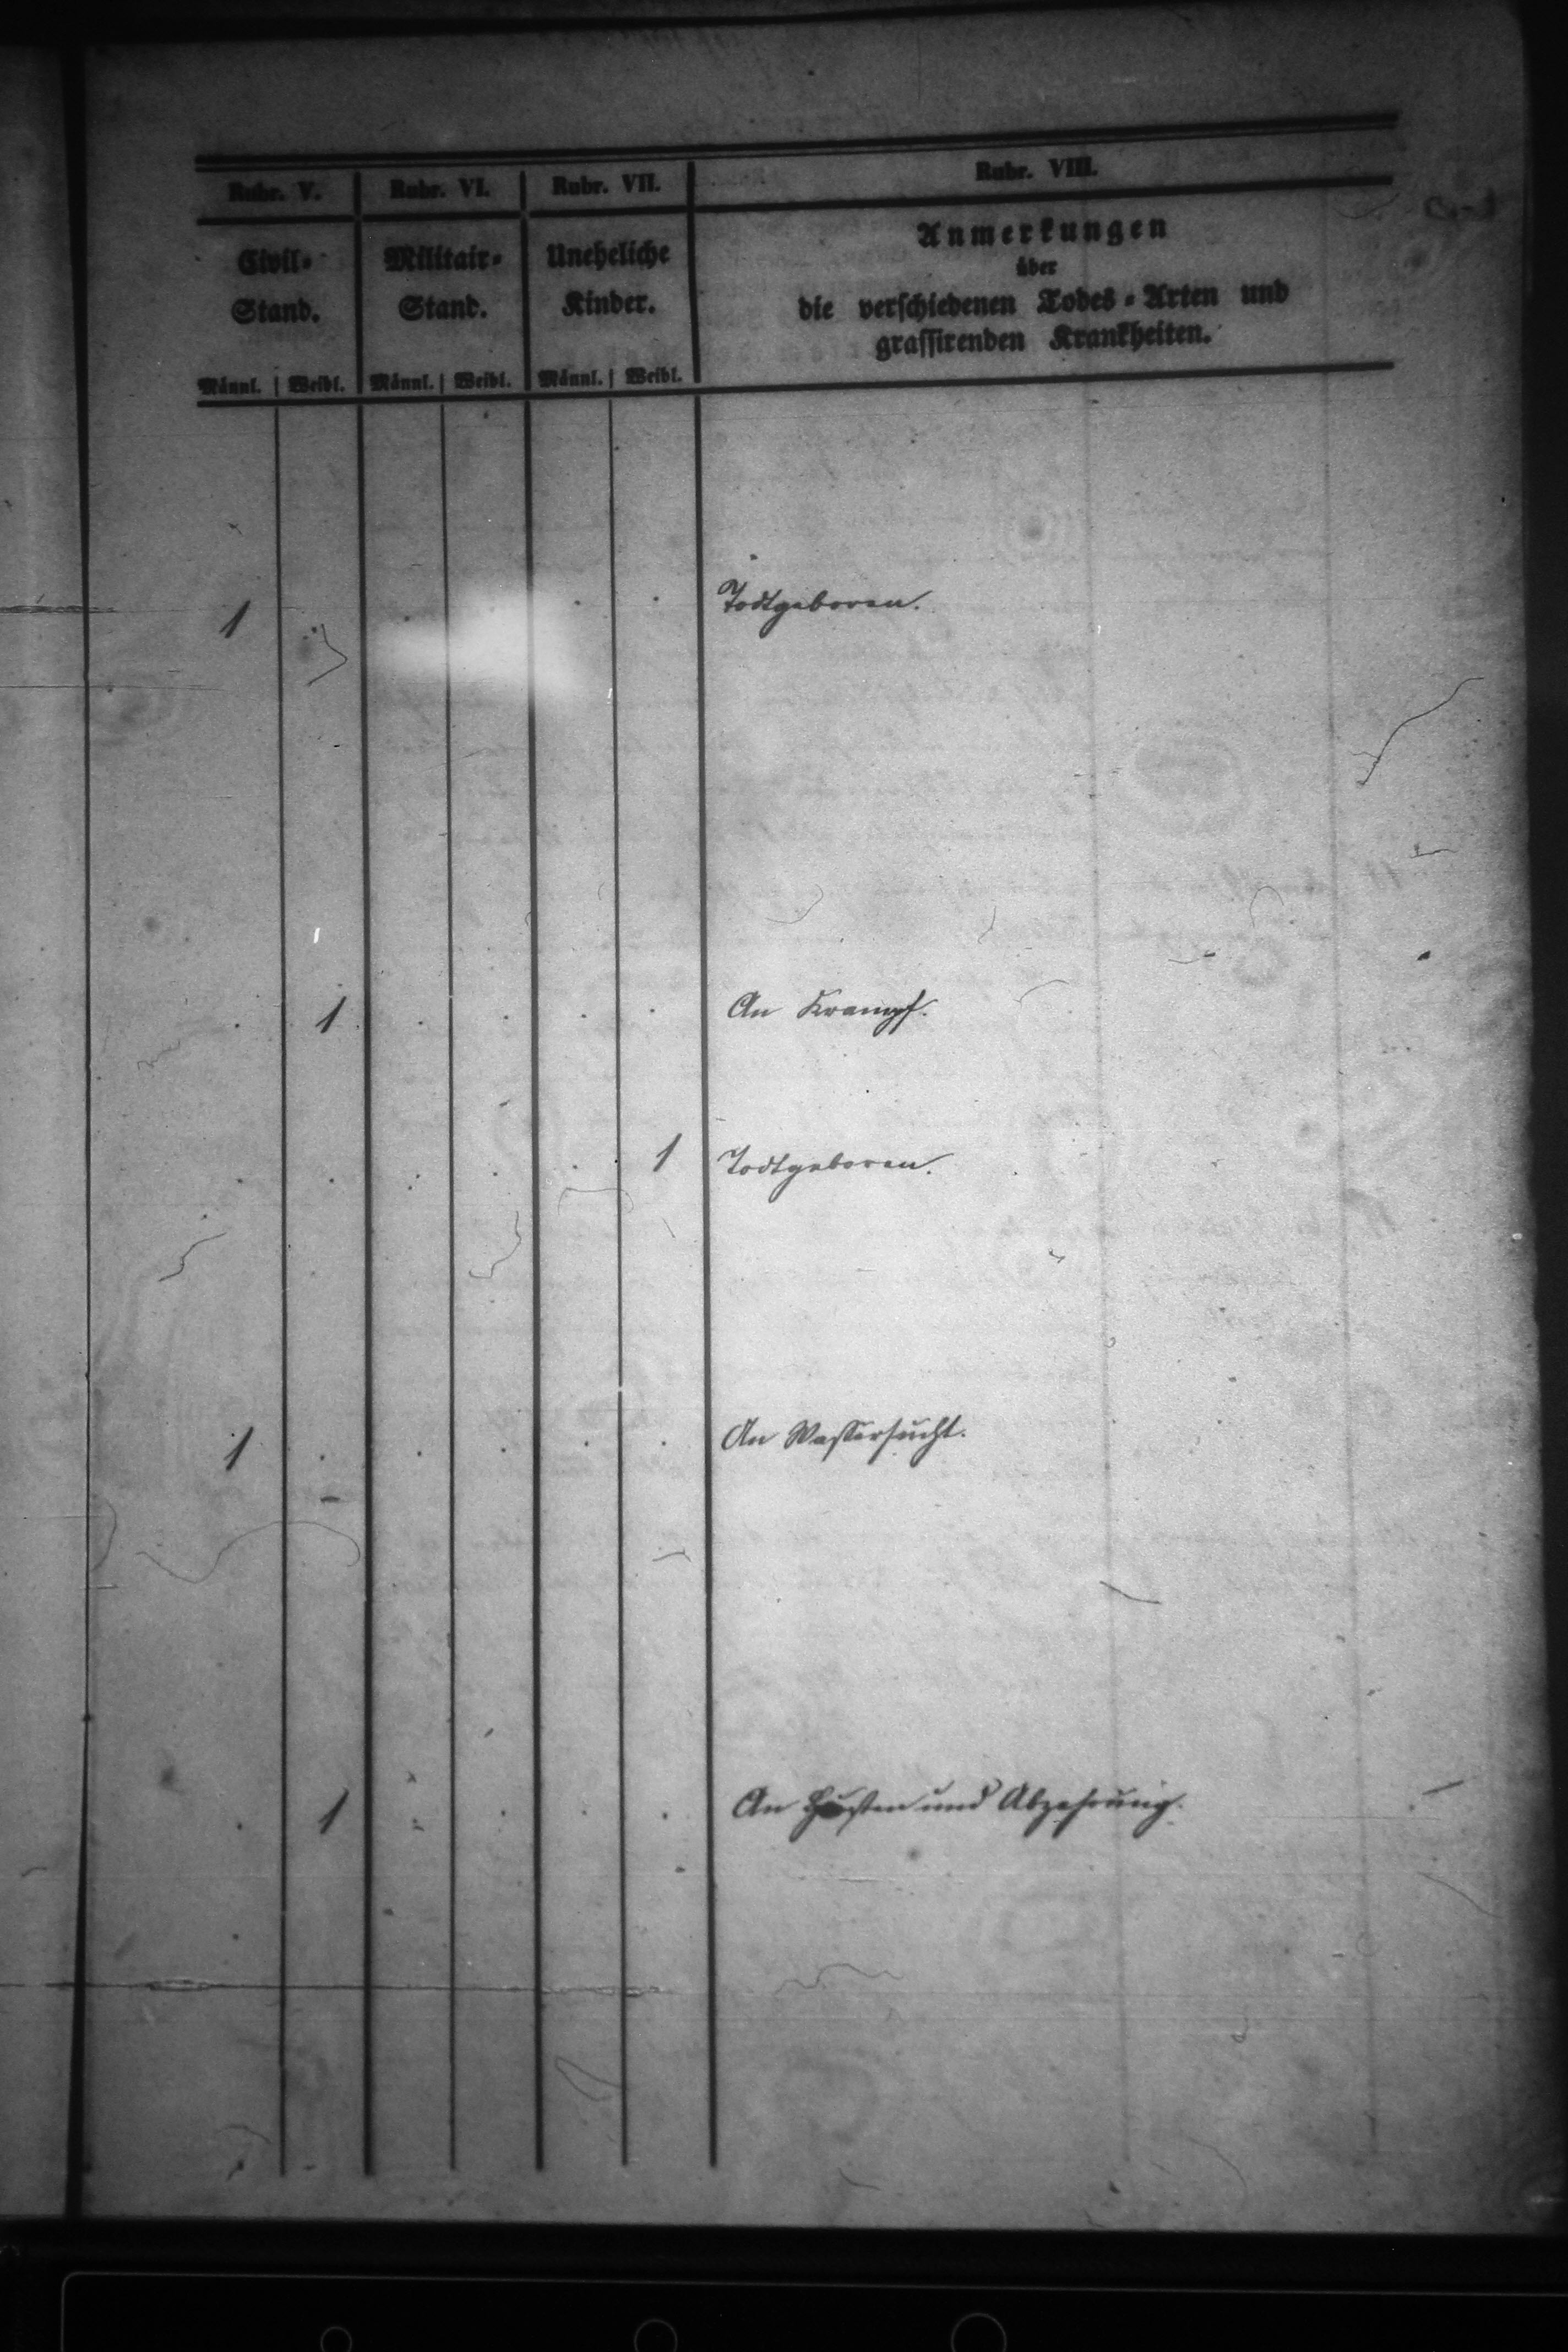 Rubr. V. Rubr. VI. Rubr. VII. Rubr. VIII.
Civil- Stand. Militair- Stand. Uneheliche Kinder. Anmerkungen
über
die verschiedenen Todes-Arten und
grassirenden Krankheiten.
Männl. Weibl. Männl. Weibl. Männl. Weibl.
1 . . Todtgeboren.
. 1 . . . . An Krampf.
. . . . . 1 Todtgeboren.
1 . . . . . An Wassersucht.
. 1 . . . . An Husten und Abzehrung.